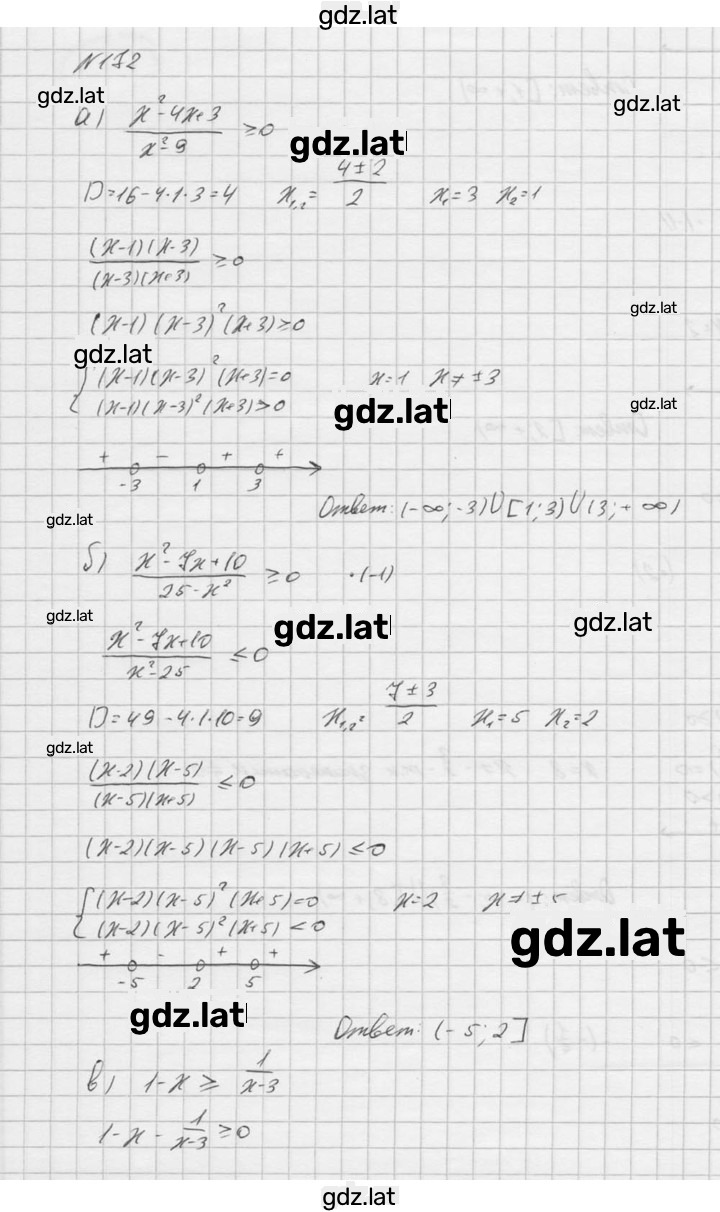 gdz.lat
N172
gdz.lat
gdz.lat
а) (x²-4x+3)/(x²-9) ≥0
gdz.lat
D=16-4·1·3=4 x₁,₂= (4±2)/2 x₁=3 x₂=1
((x-1)(x-3))/((x-3)(x+3)) ≥0
gdz.lat
(x-1)(x-3)²(x+3)≥0
gdz.lat
{ (x-1)(x-3)²(x+3)=0 x=1 x≠±3
gdz.lat
(x-1)(x-3)²(x+3)>0
gdz.lat
+ - + +
-3 1 3
Ответ: (-∞;-3)∪[1;3)∪(3;+∞)
gdz.lat
б) (x²-7x+10)/(25-x²) ≥0 ·(-1)
gdz.lat
gdz.lat
gdz.lat
(x²-7x+10)/(x²-25) ≤0
D=49-4·1·10=9 x₁,₂= (7±3)/2 x₁=5 x₂=2
gdz.lat
((x-2)(x-5))/((x-5)(x+5)) ≤0
(x-2)(x-5)(x-5)(x+5)≤0
{ (x-2)(x-5)²(x+5)=0 x=2 x≠±5
(x-2)(x-5)²(x+5)<0
gdz.lat
+ - + +
-5 2 5
gdz.lat
Ответ: (-5;2]
в) 1-x≥ 1/(x-3)
1-x- 1/(x-3) ≥0
gdz.lat